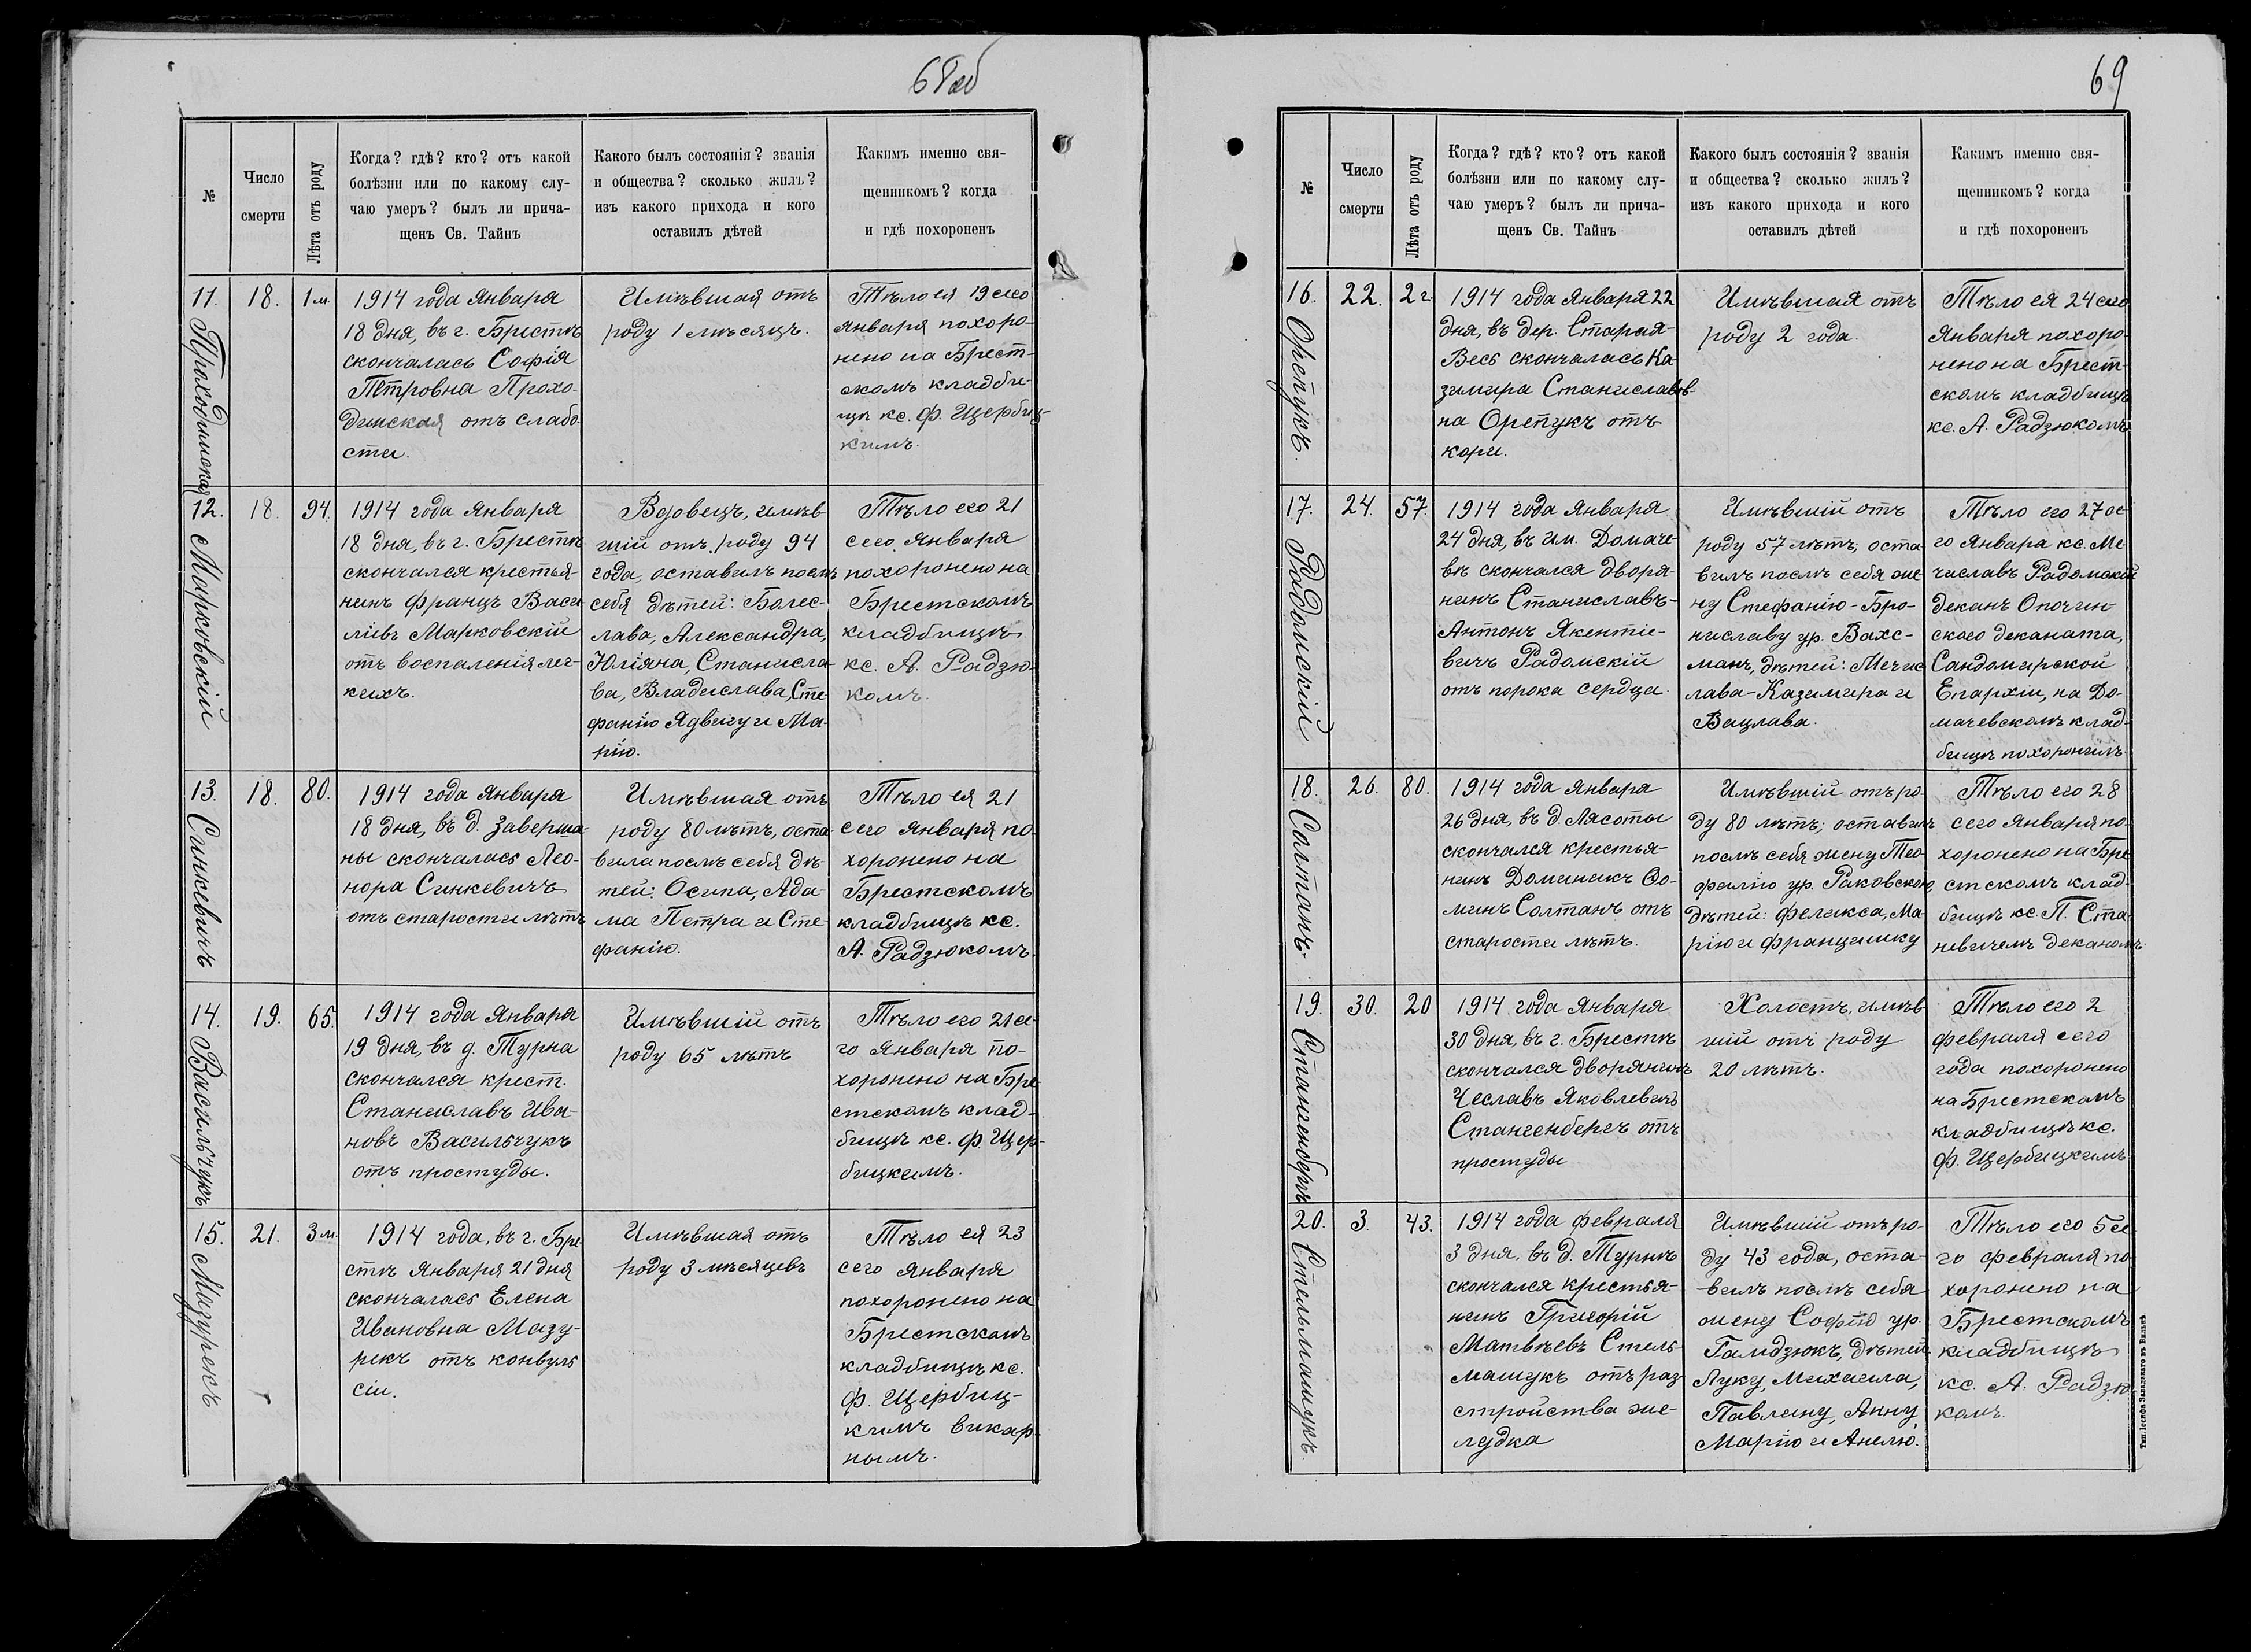 68об
№
Число
смерти
Лѣта отъ роду
Когда? гдѣ? кто? отъ какой
болѣзни или по какому слу-
чаю умеръ? былъ ли прича-
щенъ Св. Тайнъ
Какого былъ состоянія? званія
и общества? сколько жилъ?
изъ какого прихода и кого
оставилъ дѣтей
Какимъ именно свя-
щенникомъ? когда
и гдѣ похороненъ
11.
Проходзинская
18.
1 м.
1914 года Января
18 дня, въ г. Брестѣ
скончалась Софія
Петровна Прохо-
дзинская отъ слабо
сти.
Имѣвшая отъ
роду 1 мѣсяцъ.
Тѣло ея 19 сего
января похоро-
нено на Брест-
скомъ кладби-
щѣ кс. Ф. Щербиц-
кимъ.
12.
Марковскій
18.
94.
1914 года Января
18 дня, въ г. Брестѣ
скончался крестья-
нинъ Францъ Васи
ліевъ Марковскій
отъ воспаленія лег-
кихъ.
Вдовецъ, имѣв
шій отъ роду 94
года, оставилъ послѣ
себя дѣтей: Болес-
лава, Александра,
Юліяна, Станисла-
ва, Владислава, Сте
фанію Ядвигу и Ма-
рію.
Тѣло его 21
сего Января
похоронено на
Брестскомъ
кладбищѣ
кс. А. Радзю-
комъ.
13.
Синкевичъ
18.
80.
1914 года Января
18 дня, въ д. Заверша-
ны скончалась Лео-
нора Синкевичъ
отъ старости лѣтъ
Имѣвшая отъ
роду 80 лѣтъ, оста
вила послѣ себя дѣ-
тей: Осипа, Ада-
ма Петра и Сте-
фанію.
Тѣло ея 21
сего Января по-
хоронено на
Брестскомъ
кладбищѣ кс.
А. Радзюкомъ.
14.
Васильчукъ
19.
65.
1914 года Января
19 дня, въ д. Турна
скончался крест.
Станиславъ Ива-
новъ Васильчукъ
отъ простуды.
Имѣвшій отъ
роду 65 лѣтъ
Тѣло его 21 се-
го Января по-
хоронено на Бре-
стскомъ клад-
бищѣ кс. Ф. Щер-
бицкимъ.
15.
Мазурекъ
21.
3 м.
1914 года, въ г. Бре
стѣ Января 21 дня
скончалась Елена
Ивановна Мазу-
рекъ отъ конвуль
сіи.
Имѣвшая отъ
роду 3 мѣсяцевъ
Тѣло ея 23
сего Января
похоронено на
Брестскомъ
кладбищѣ кс.
Ф. Щербиц-
кимъ викар
нымъ.
69
№
Число
смерти
Лѣта отъ роду
Когда? гдѣ? кто? отъ какой
болѣзни или по какому слу-
чаю умеръ? былъ ли прича-
щенъ Св. Тайнъ
Какого былъ состоянія? званія
и общества? сколько жилъ?
изъ какого прихода и кого
оставилъ дѣтей
Какимъ именно свя-
щенникомъ? когда
и гдѣ похороненъ
16.
Орепукъ.
22.
2 г.
1914 года Января 22
дня, въ дер. Старая-
Весь скончалась Ка
зимира Станиславов-
на Орепукъ отъ
кори.
Имѣвшая отъ
роду 2 года.
Тѣло ея 24 сего
Января похоро-
нено на Брест-
скомъ кладбищѣ
кс. А. Радзюкомъ
17.
Радомскій
24.
57.
1914 года Января
24 дня, въ им. Домаче-
вѣ скончался дворя-
нинъ Станиславъ-
Антонъ Якентіе-
вичъ Радомскій
отъ порока сердца.
Имѣвшій отъ
роду 57 лѣтъ; оста-
вилъ послѣ себя же
ну Стефанію-Бро-
ниславу ур. Вахс-
манъ, дѣтей: Мечис
лава-Казимира и
Вацлава.
Тѣло его 27 се-
го Января кс. Ме-
числавъ Радомскій
деканъ Опочин-
скаго деканата,
Сандомирской
Епархіи, на До-
мачевскомъ клад-
бищѣ похоронилъ.
18.
Солтанъ.
26.
80.
1914 года Января
26 дня, въ д. Лясоты
скончался крестья-
нинъ Доминикъ Ѳо-
минъ Солтанъ отъ
старости лѣтъ.
Имѣвшій отъ ро-
ду 80 лѣтъ; оставилъ
послѣ себя жену Тео
филію ур. Раковскою,
дѣтей: Феликса, Ма-
рію и Францишку
Тѣло его 28
сего Января по-
хоронено на Бре
стскомъ клад-
бищѣ кс. П. Ста-
невичемъ деканомъ.
19.
Стангенбергъ
30.
20
1914 года Января
30 дня, въ г. Брестѣ
скончался дворянинъ
Чеславъ Яковлевичъ
Стангенбергъ отъ
простуды
Холостъ, имѣв
шій отъ роду
20 лѣтъ.
Тѣло его 2
февраля сего
года похоронено
на Брестскомъ
кладбищѣ кс.
Ф. Щербицкимъ
20.
Стельмашукъ.
3.
43.
1914 года февраля
3 дня, въ д. Турнѣ
скончался крестья-
нинъ Григорій
Матвѣевъ Стель-
машукъ отъ раз
стройства же-
лудка
Имѣвшій отъ ро-
ду 43 года, оста-
вилъ послѣ себя
жену Софію ур.
Гамдзюкъ, дѣтей
Луку, Михаила,
Павлину, Анну,
Марію и Анелю.
Тѣло его 5 се-
го февраля по-
хоронено на
Брестскомъ
кладбищѣ
кс. А. Радзю-
комъ.
Тип. Іосифа Завадзкаго въ Вильнѣ